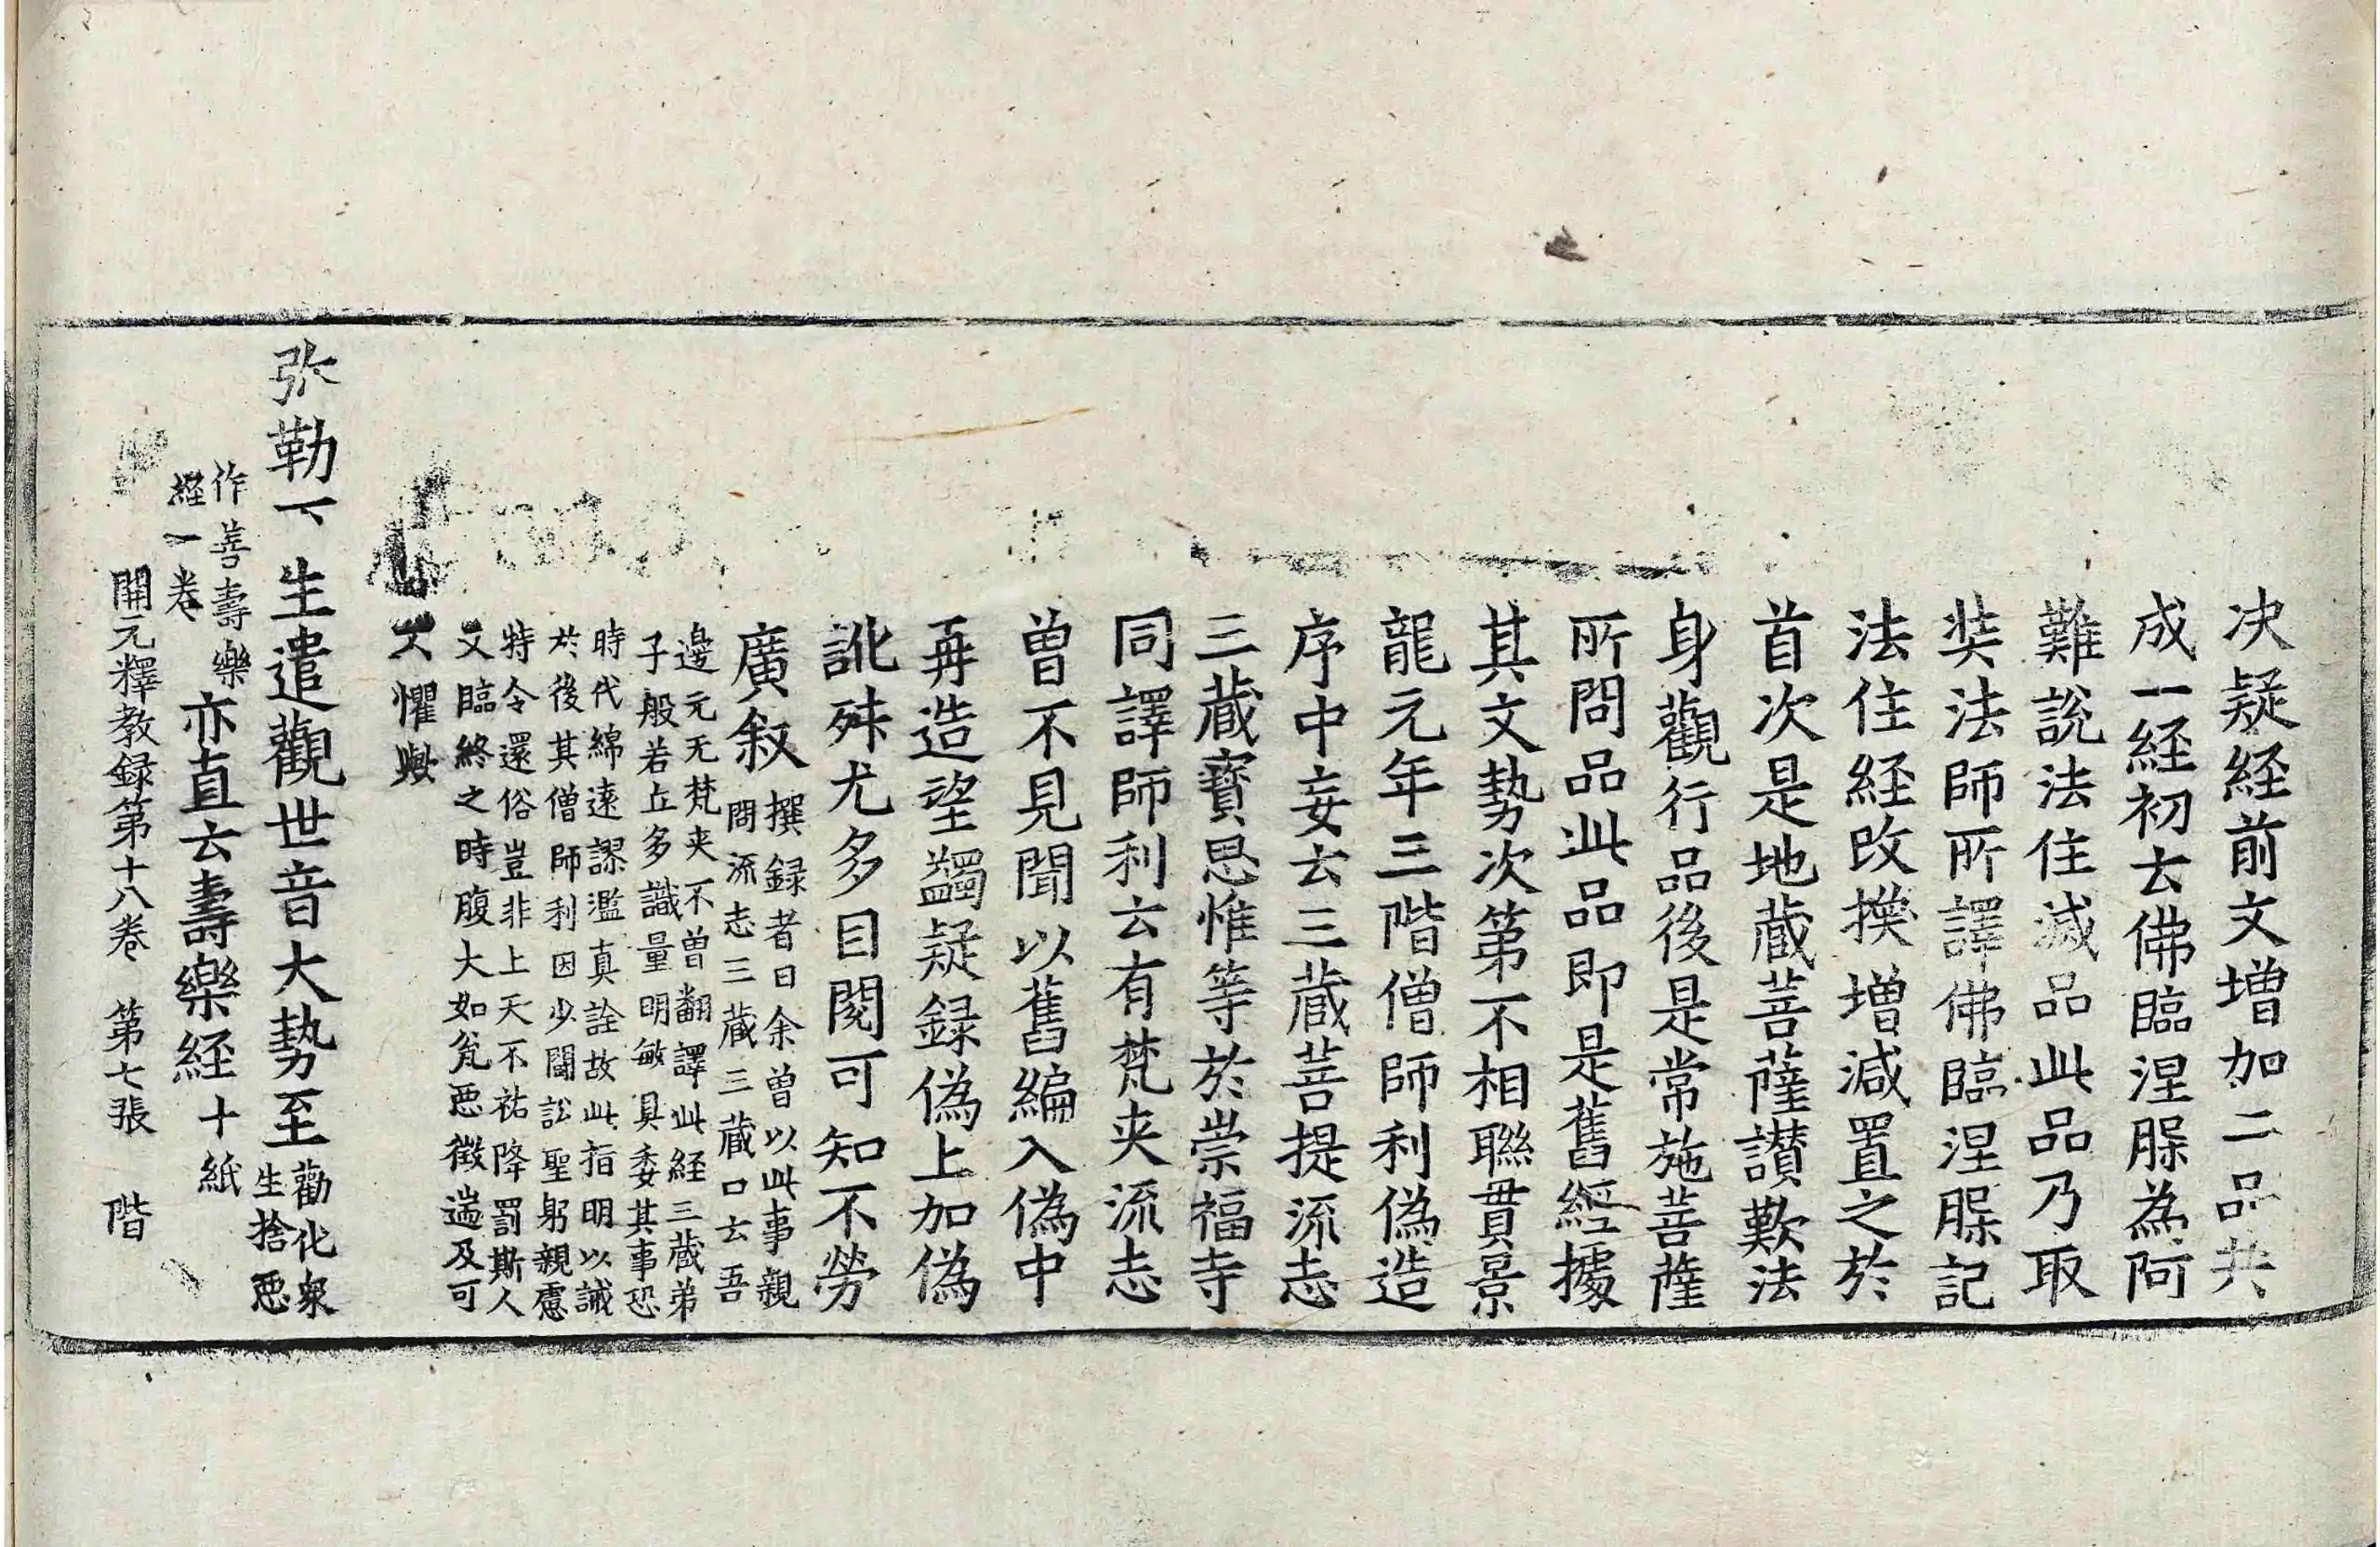 决疑経前文增加二品共
成一経初去佛臨涅脲為阿
難說法住滅品此品乃取
奘法師所譯佛臨涅脲記
法住経改換增減置之於
首次是地蔵菩薩讃歎法
身觀行品後是常施菩薩
所問品此品即是舊經據
其文勢次第不相聯貫景
龍元年三階僧師利偽造
序中妄云三蔵菩提流志
三蔵寶思惟等於崇福寺
同譯師利云有梵夹流志
曾不見聞以舊編入偽中
再造望蠲疑録偽上加偽
訛舛尤多目閱可知不勞
廣叙撰録者曰余曾以此事親
問流志三蔵三蔵口云吾
邊元无梵夹不曾翻譯此経三蔵弟
子般若丘多識量明敏具委其事恐
時代綿遠謬濫真詮故此指明以誡
於後其僧師利因少鬪訟聖躬親慮
特令還俗豈非上天不祐降罰斯人
又臨終之時腹大如瓮悪徵遄及可
不懼歟
弥勒下生遣觀世音大勢至勸化衆
生捨悪
作善壽樂
経一巻亦直云壽樂経十紙
開元釋教録第十八巻 第七張 階